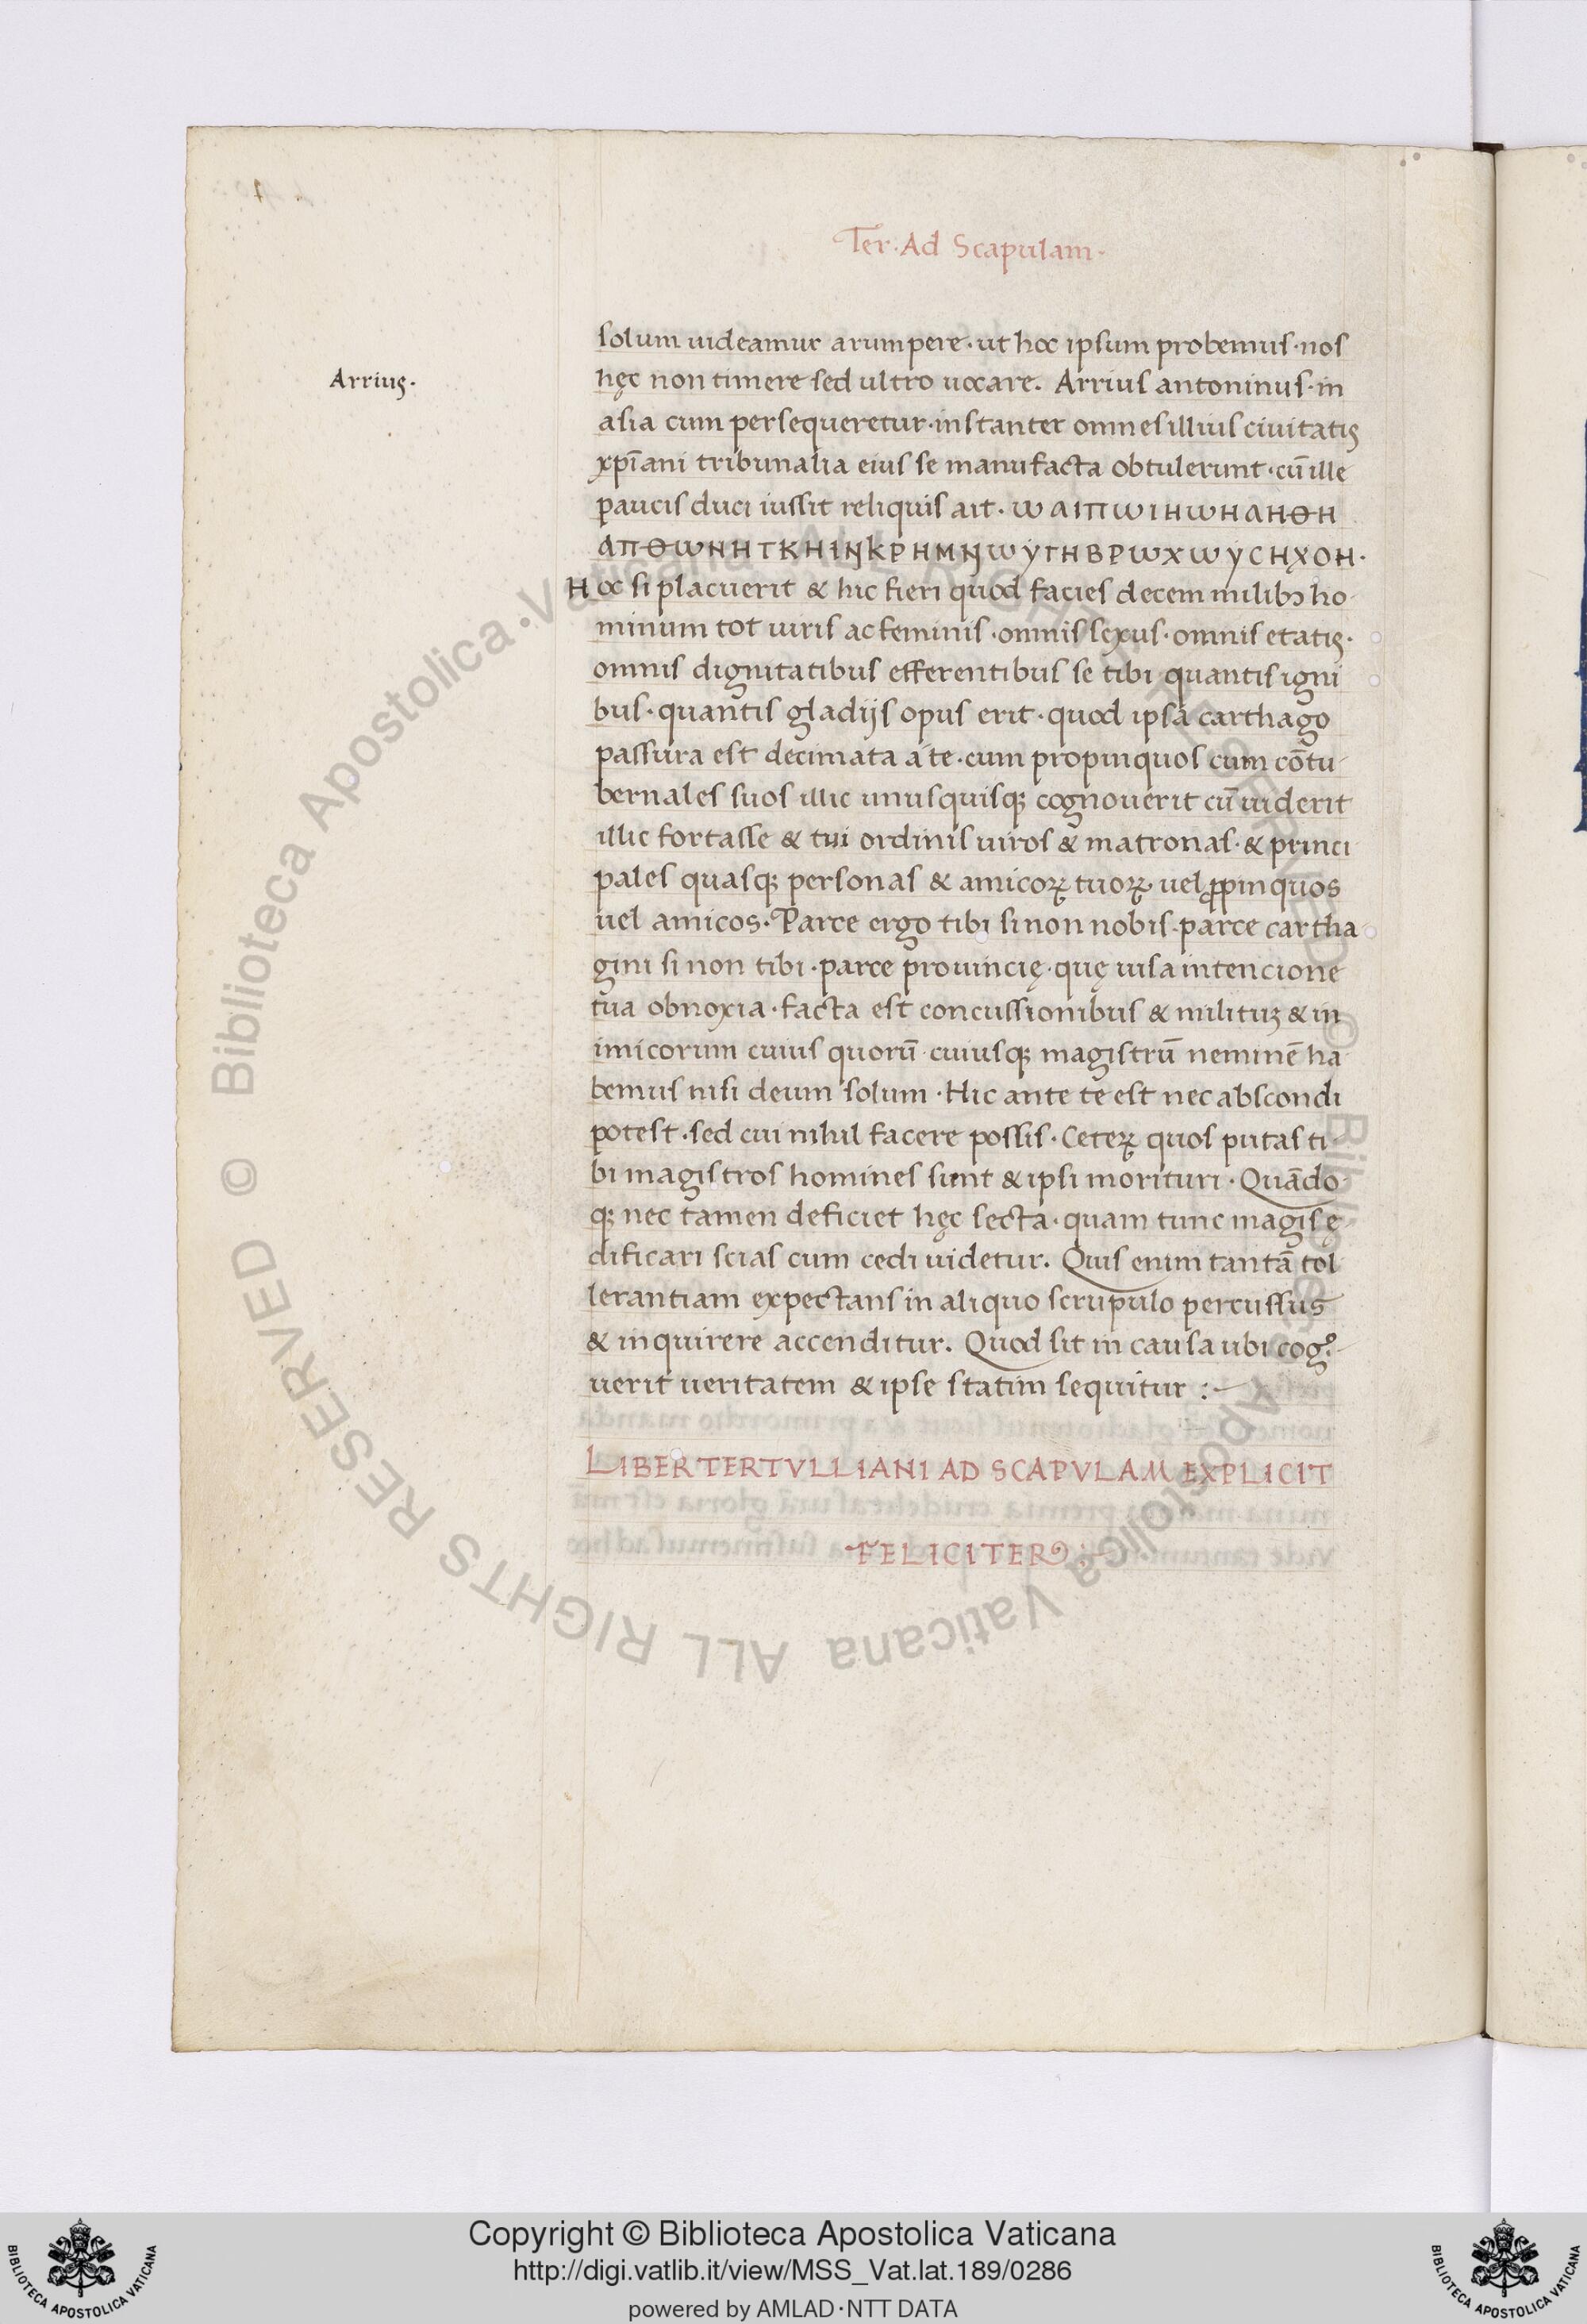 Ter· Ad Scapulam·
solum uideamur arumpere· ut hoc ipsum probemus· nos
Arrius·
hęc non timere sed ultro uocare. Arrius antoninus· in
asia cum persequeretur· instanter omnes illius ciuitatis
xp̄iani tribunalia eius se manufacta obtulerunt· cū ille
paucis duci iussit reliquis ait· W ΑΙΠ W Ι Η W Η Α Η Θ Η
ΑΠΘWΗΗΤΚΗΙΝΚΡΗΜΝWΥΓΗΒΡWΧWΥСΗΧΟΗ·
Hoc si placuerit & hic fieri quod facies decem milibꝫ ho
minum tot uiris ac feminis· omnis sexus· omnis etatis·
omnis dignitatibus efferentibus se tibi quantis igni
bus· quantis gladijs opus erit· quod ipsa carthago
passura est decimata a te· cum propinquos cum cōtu
bernales suos illic unusquisqꝫ cognouerit cū uiderit
illic fortasse & tui ordinis uiros & matronas· & princi
pales quasqꝫ personas & amicoꝝ tuoꝝ uel ꝓpinquos
uel amicos· Parce ergo tibi si non nobis· parce cartha
gini si non tibi· parce prouincię· quę uisa intencione
tua obnoxia· facta est concussionibus & milituꝫ & in
imicorum cuius quorū cuiusqꝫ magistrū neminē ha
bemus nisi deum solum· Hic ante te est nec abscondi
potest· sed cui nihil facere possis· Ceteꝝ quos putas ti
bi magistros homines sunt & ipsi morituri· Quādo
qꝫ nec tamen deficiet hęc secta· quam tunc magis ę
dificari scias cum cedi uidetur. Quis enim tantā tol
lerantiam expectans in aliquo scrupulo percussus
& inquirere accenditur. Quod sit in causa ubi cogº
uerit ueritatem & ipse statim sequitur :~
LIBER TERTVLLIANI AD SCAPVLAM EXPLICIT
FELICITER :~
© Biblioteca Apostolica Vaticana ALL RIGHTS RESERVED
© Biblioteca Apostolica Vaticana ALL RIGHTS RESERVED
Copyright © Biblioteca Apostolica Vaticana
http://digi.vatlib.it/view/MSS_Vat.lat.189/0286
powered by AMLAD·NTT DATA
BIBLIOTECA APOSTOLICA VATICANA
BIBLIOTECA APOSTOLICA VATICANA